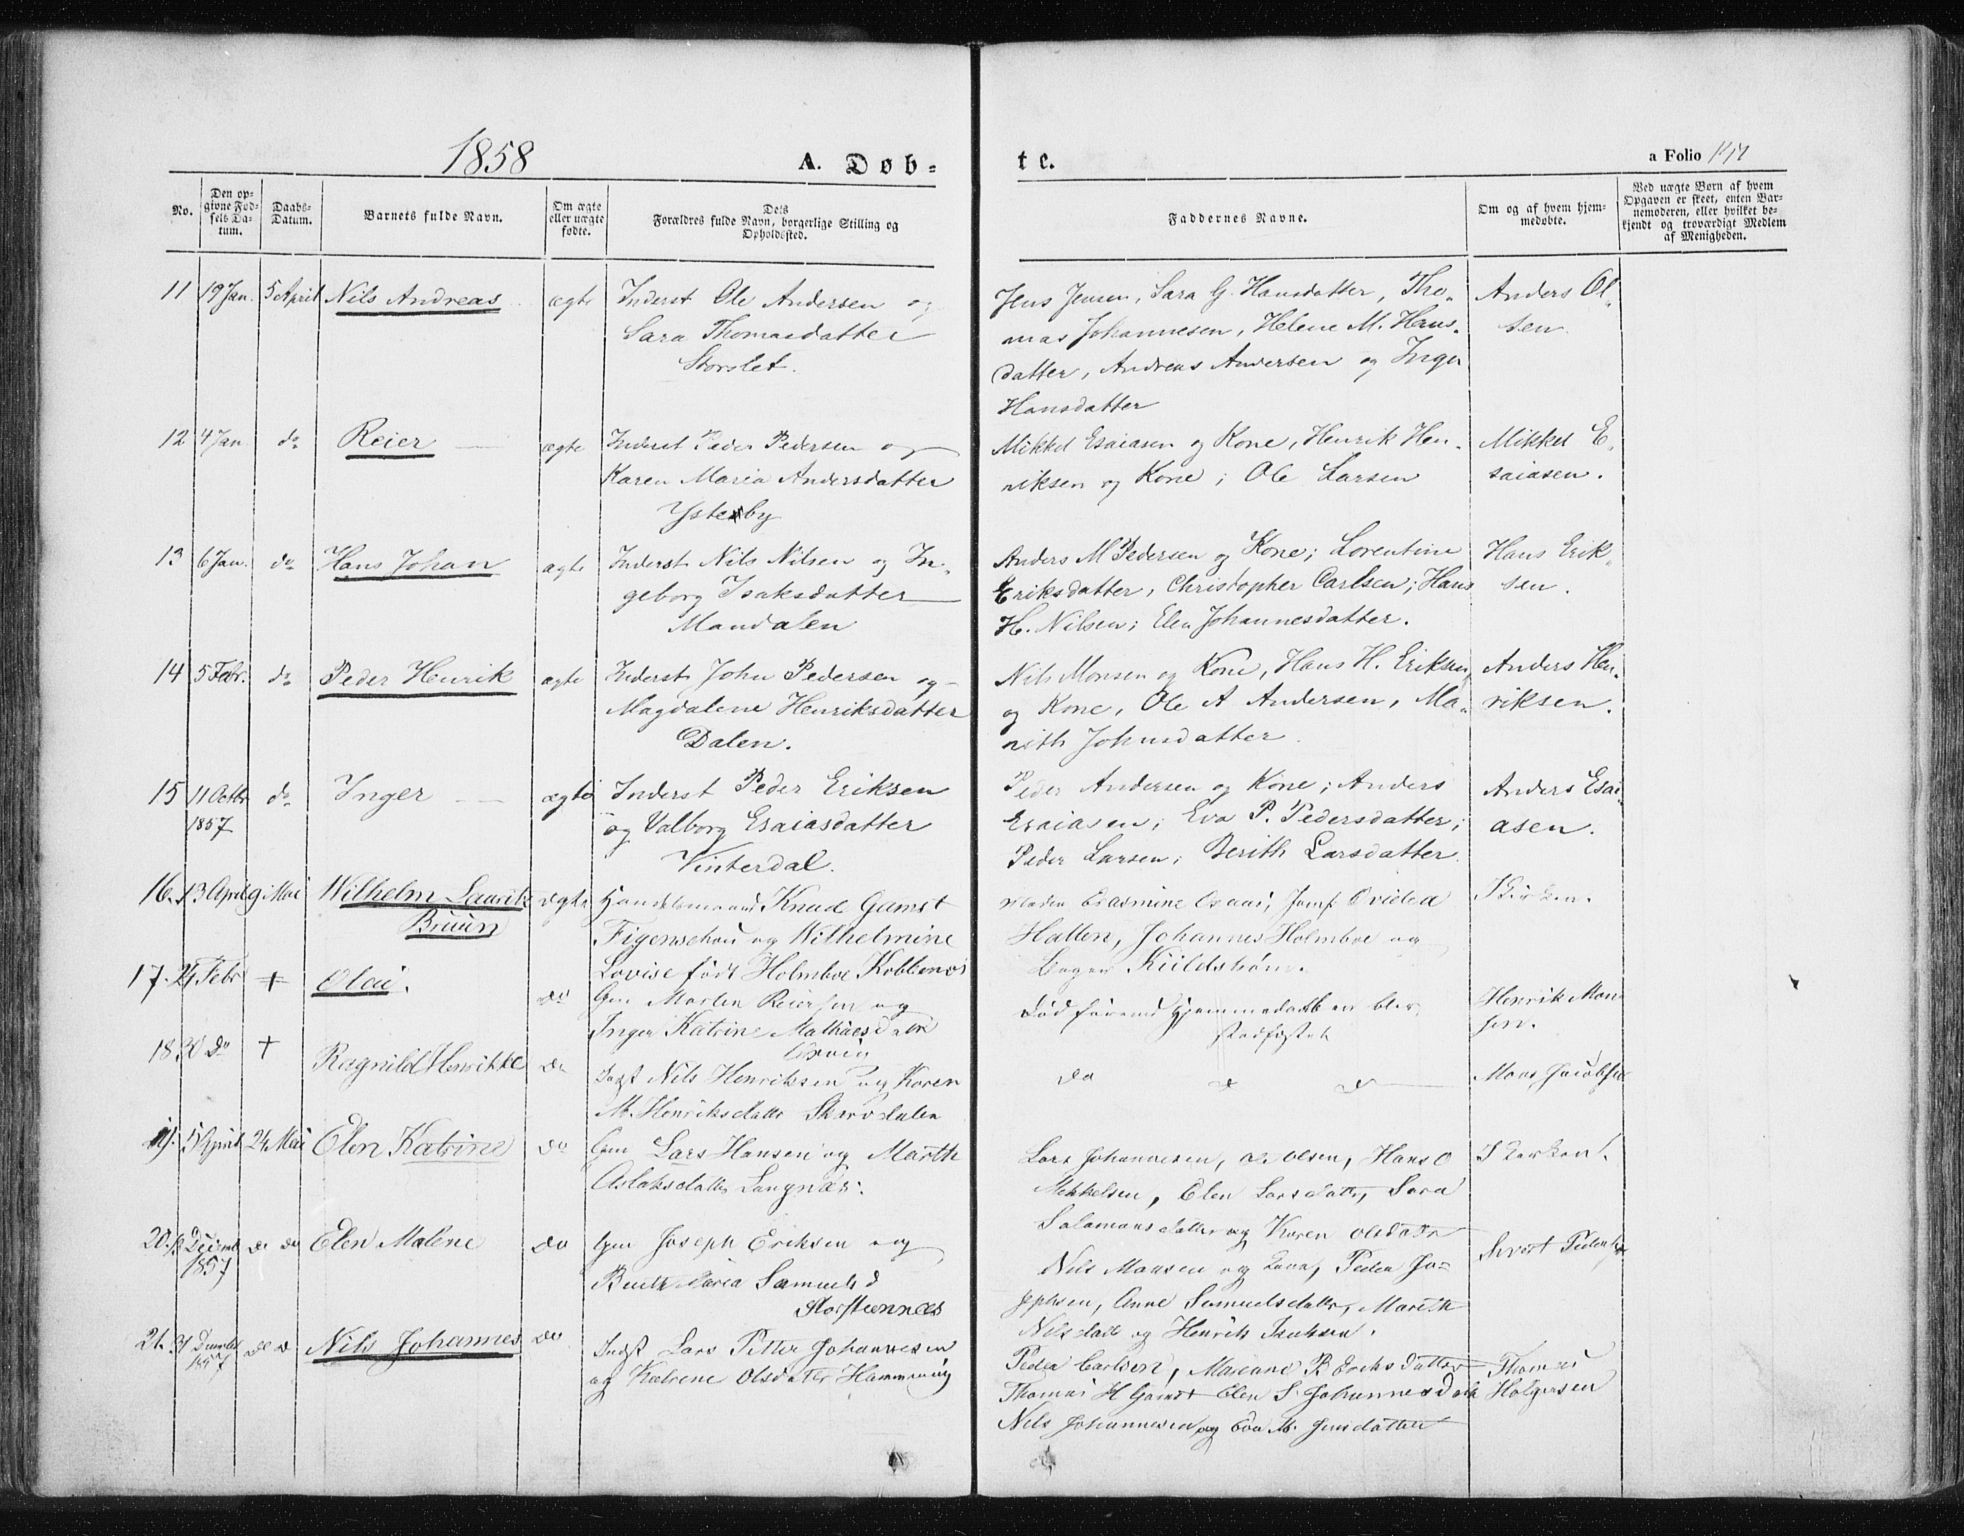 1858
A. Døb-
te.
a Folio
No.
Den op-
givne Fød-
sels Da-
tum.
Daabs-
Datum.
Barnets fulde Navn.
Om ægte
eller uægte
fødte.
Dets
Forældres fulde Navn, borgerlige Stilling og
Opholdssted.
Faddernes Navne.
Om og af hvem hjem-
medøbte.
Ved uægte Børn af hvem
Opgaven er skeet, enten Bar-
nemoderen, eller hvilket be-
kjendt og troværdigt Medlem
af Menigheden.
11 19 Jan. 5 April Nils Andreas ægte
Inderst Ole Andersen og
Sara Thomasdatter
Storslet.
Jens Jensen, Sara G. Hansdatter, Tho-
mas Johannesen, Helene M. Hans-
datter, Andreas Andersen og Inger
Hansdatter
Anders Ol-
sen
12 4 Jan do Reier ægte
Inderst Peder Pedersen og
Karen Maria Andersdatter
Ysteby
Mikkel Esaiasen og Kone, Henrik Hen-
riksen og Kone; Ole Larsen
Mikkel E-
saiasen.
13 6 Jan. do Hans Johan ægte
Inderst Nils Nilsen og In-
geborg Isaksdatter
Mandalen
Anders M Pedersen og Kone; Lorentine
Eriksdatter, Christopher Carlsen; Hans
H. Nilsen; Elen Johannesdatter.
Hans Erik-
sen.
14 5 Febr. do Peder Henrik ægte
Inderst John Pedersen og
Magdalene Henriksdatter
Dalen.
Nils Monsen og Kone, Hans H. Eriksen
og Kone, Ole A Andersen, Ma-
rith Johnsdatter
Anders Hen-
riksen.
15 11 Octbr 1857 do Inger ægte
Inderst Peder Eriksen
og Valborg Esaiasdatter
Vinterdal.
Peder Andersen og Kone; Anders
Esaiasen; Eva P. Pedersdatter;
Peder Larsen; Berith Larsdatter.
Anders Esai-
asen.
16. 13 April 9 Mai Wilhelm Lauritz
Bruun
ægte
Handelsmand Knud Gamst
Figenschou og Wilhelmine
Lovise født Holmboe
Madam Erasmine, Jomf
Hatten, Johannes Holmboe og
I Kirken.
17. 24 Febr + Olai.
do
Gm Morten Reiersen og
Inger Katrine Mathiesd
Død førend Hjemmedaaben blev
stadfæstet
Henrik Mon-
sen.
18 20 do + Ragnild Henrikke do
Indst Nils Henriksen og Karen
M. Henriksdatter
do
Mons Jacobsen
19. 5 April 24 Mai Elen Katrine do
Gm Lars Hansen og Marith
Aslaksdatter Langnæs.
Lars Johannesen, Ole Olsen, Hans O
Mikkelsen, Elen Larsdatter, Sara
Salamonsdatter og Karen Olsdatr
I Kirken.
20. Decemb
1857
do do Elen Malene do
Gm Joseph Eriksen og
Berith Maria Samuelsd
Storstennes
Nils Monsen og Kone, Peder Jo-
sephsen, Anne Samuelsdatter, Marith
Nilsdatt og Henrik Isaksen.
Sivert Pedersen
21. 31 Decemb
1857
do do Nils Johannes do
Indst Lars Petter Johannesen
og Katrine Olsdatter
Peder Carlsen, Mariane P. Eriksdatter
Thomas H Gamst Elen S. Johannesdatt
Nils Johannesen og Eva M. Jensdatter
Thomas
Holgersen